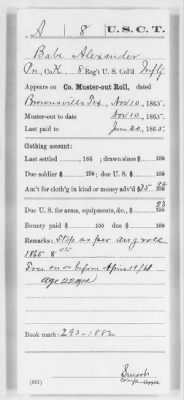 A | 8 | U.S.C.T.
Babe Alexander
Pvt, Co. K, 8 Reg't U.S. Col'd Inf'y
Appears on Co. Muster-out Roll, dated
Brownsville Tex, Nov 10, 1865.
Muster-out to date Nov 10, 1865.
Last paid to June 30, 1865.
Clothing account:
Last settled , 186 ; drawn since $ 100
Due soldier $ 100; due U.S. $ 100
Am't for cloth'g in kind or money adv'd $ 25 24/100
Due U.S. for arms, equipments, &c., $ 23/100
Bounty paid $ 100; due $ 100
Remarks: Stop as per aug roll
1865 8 cts
Free on or before April 19/61
age 22 yrs
Book mark: 293-1882
(361)